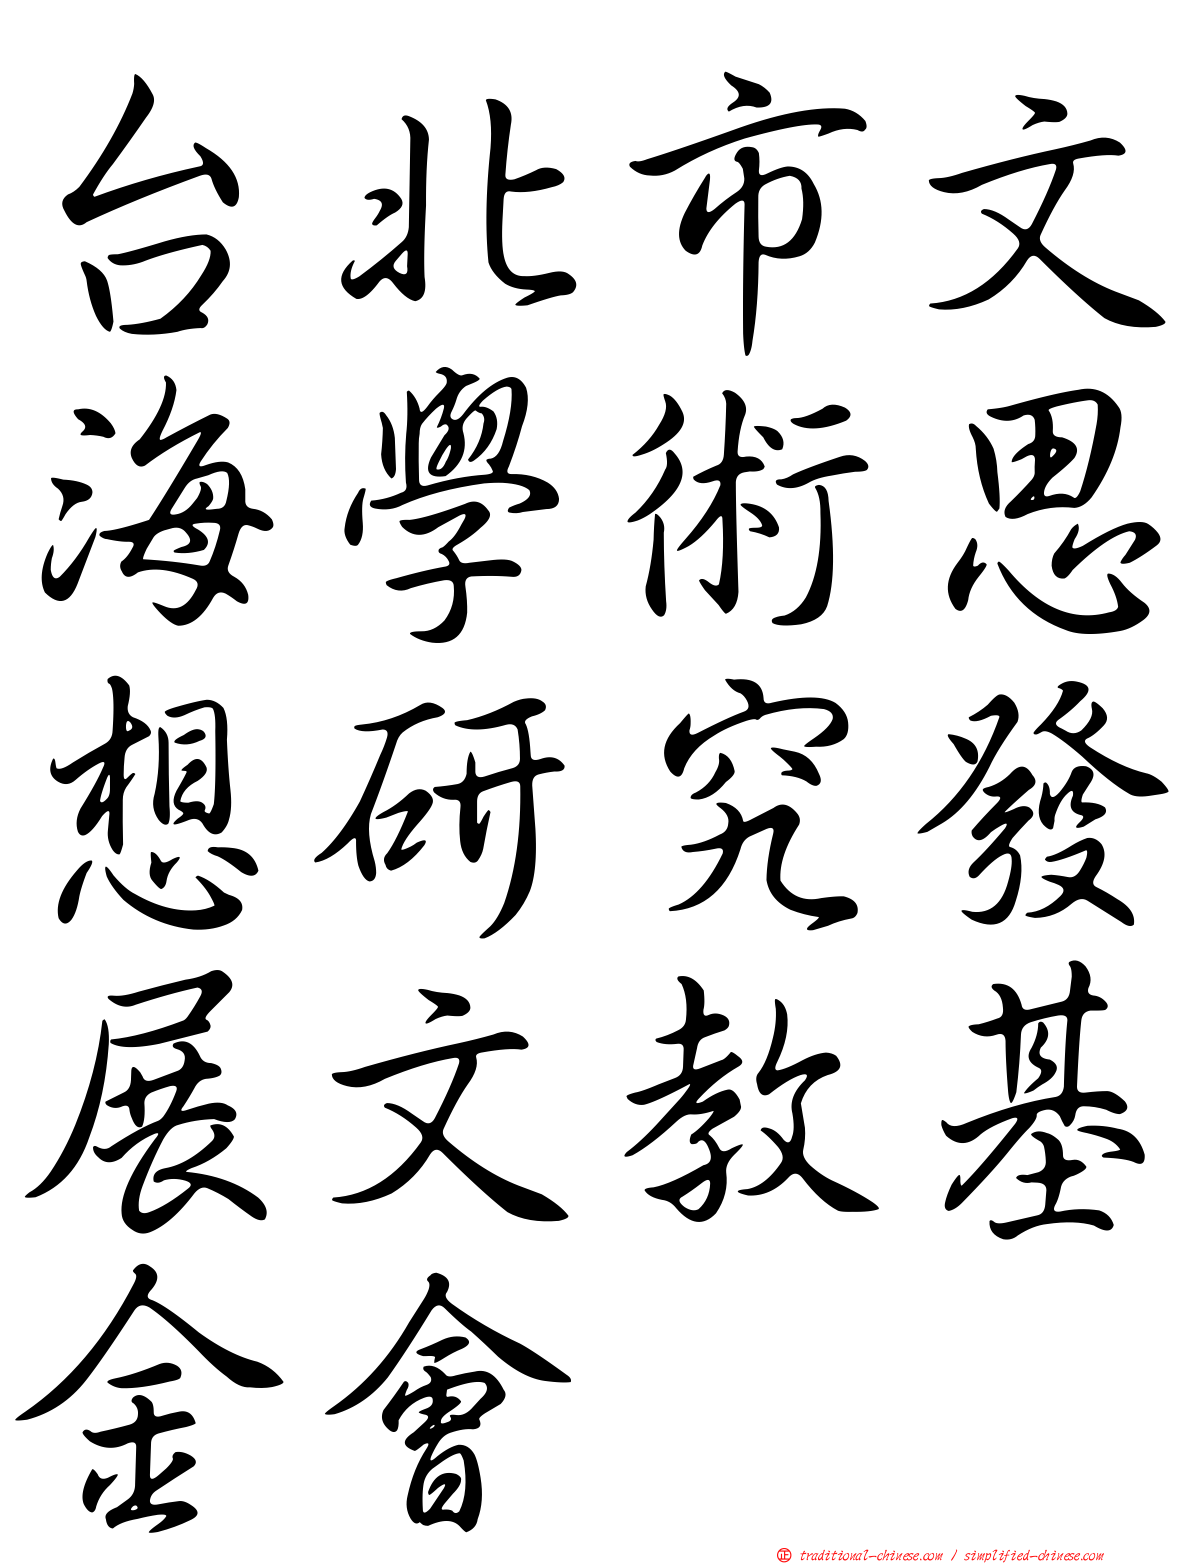 台北市文
海學術思
想研究發
展文教基
金會
正 traditional-chinese.com / simplified-chinese.com